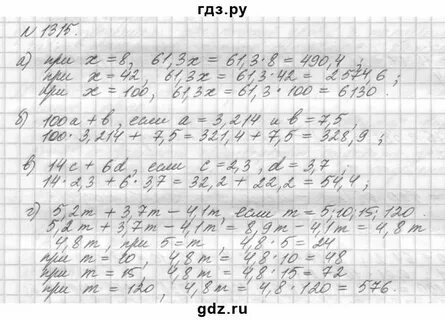 гдз.ру
N 1315.
а) при x = 8, 61,3x = 61,3·8 = 490,4 ;
при x = 42, 61,3x = 61,3·42 = 2574,6 ;
при x = 100, 61,3x = 61,3·100 = 6130.
б) 100a + b, если a = 3,214 и b = 7,5,
100·3,214 + 7,5 = 321,4 + 7,5 = 328,9 ;
в) 14c + 6d, если c = 2,3, d = 3,7 ;
14·2,3 + 6·3,7 = 32,2 + 22,2 = 54,4 ;
г) 5,2m + 3,7m - 4,1m, если m = 5; 10; 15; 120.
5,2m + 3,7m - 4,1m = 8,9m - 4,1m = 4,8m
4,8m, при 5 = m, 4,8·5 = 24
при m = 10, 4,8m = 4,8·10 = 48
при m = 15, 4,8m = 4,8·15 = 72
при m = 120, 4,8m = 4,8·120 = 576.
гдз.ру